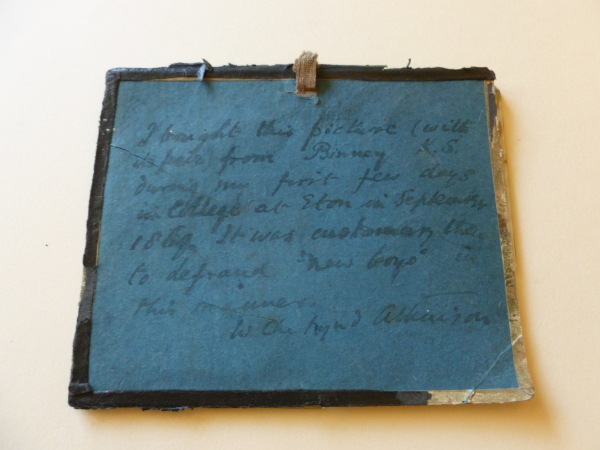 I bought this picture (with
its pair) from Binney K.S.
during my first few days
in College at Eton in September
1869. It was customary then
to defraud "new boys" in
this manner.
Atkinson